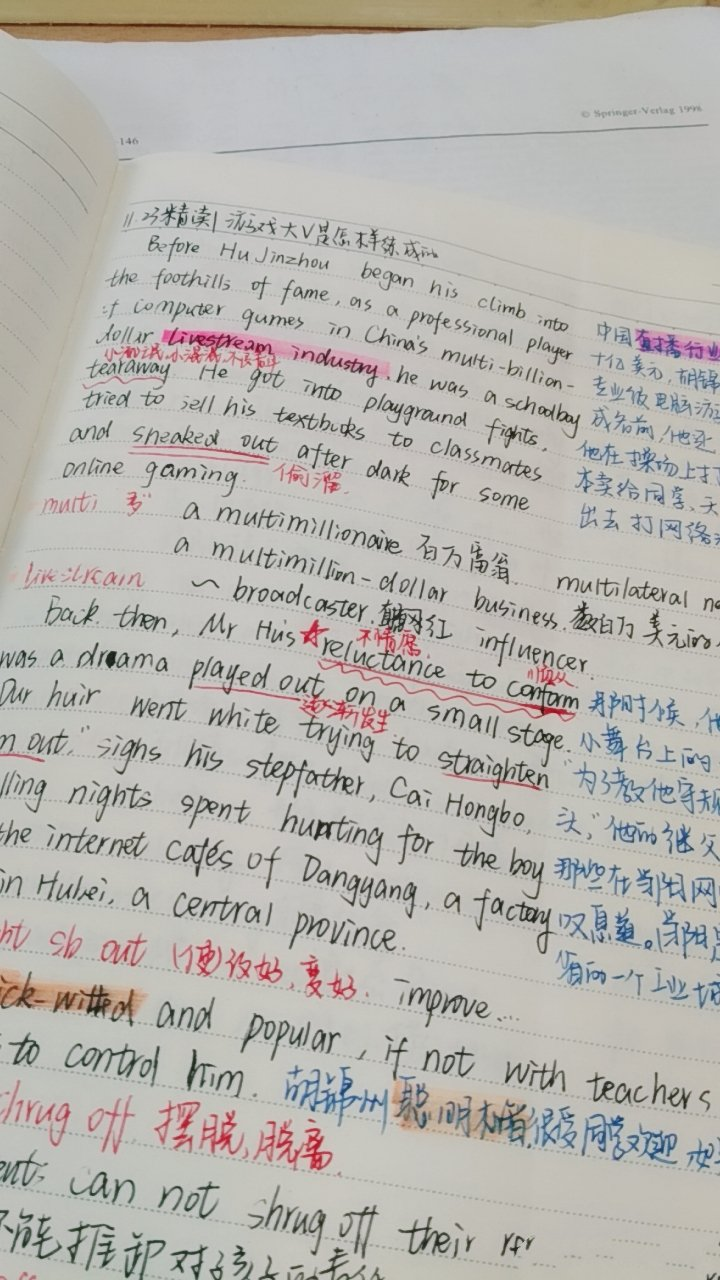 -146
© Springer-Verlag 1996
11.23精读| 游戏大V是怎样练成的
Before Hu Jinzhou began his climb into
the foothills of fame, as a professional player
of computer games in China's multi-billion-
dollar livestream industry, he was a schoolboy
小流氓, 小混混, 不良青年
tearaway He got into playground fights,
tried to sell his textbooks to classmates
and sneaked out after dark for some
偷溜
online gaming.
中国直播行业
十亿美元, 胡锦
专业级电脑游
成名前, 他还
他在操场上打
本卖给同学, 天
出去打网络
multi 多 a multimillionaire 百万富翁 multilateral
a multimillion-dollar business. 数百万美元的
livestream ~ broadcaster. 网红 influencer.
Back then, Mr Hu's reluctance to conform
不情愿 顺从
was a drama played out on a small stage.
逐渐发生
Our hair went white trying to straighten
m out," sighs his stepfather, Cai Hongbo,
lling nights spent hunting for the boy
the internet cafés of Dangyang, a factory
in Hubei, a central province.
那时候, 他
小舞台上的
"为了教他守规
头," 他的继父
那些在当阳网
叹息道。当阳是
省的一个工业城
ht sb out (使)改好, 变好. improve...
ick-witted and popular, if not with teachers
to control him. 胡锦州聪明机智很受同学欢迎
shrug off 摆脱, 脱离
ents can not shrug off their
不能推卸对孩子的责任